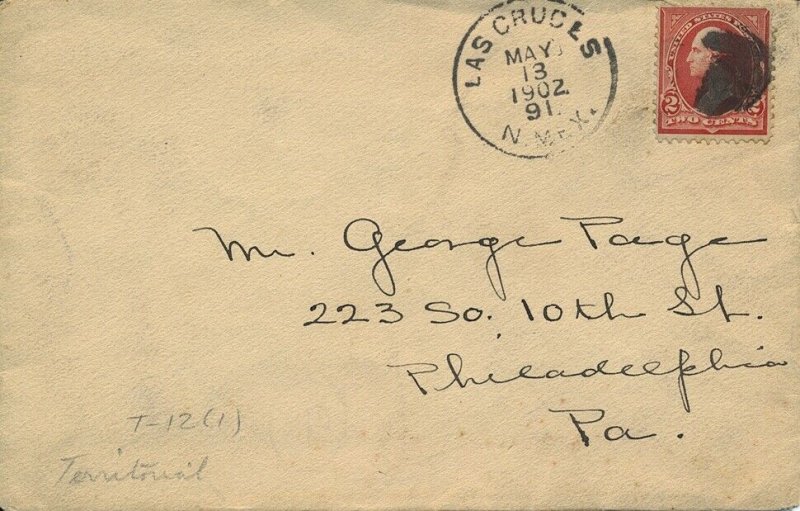 LAS CRUCES
MAY
13
1902
91.
N. MEX.
UNITED STATES
2 2
TWO CENTS
Mr. George Page
223 So. 10th St.
Philadelphia
Pa.
T-12(1)
Territorial